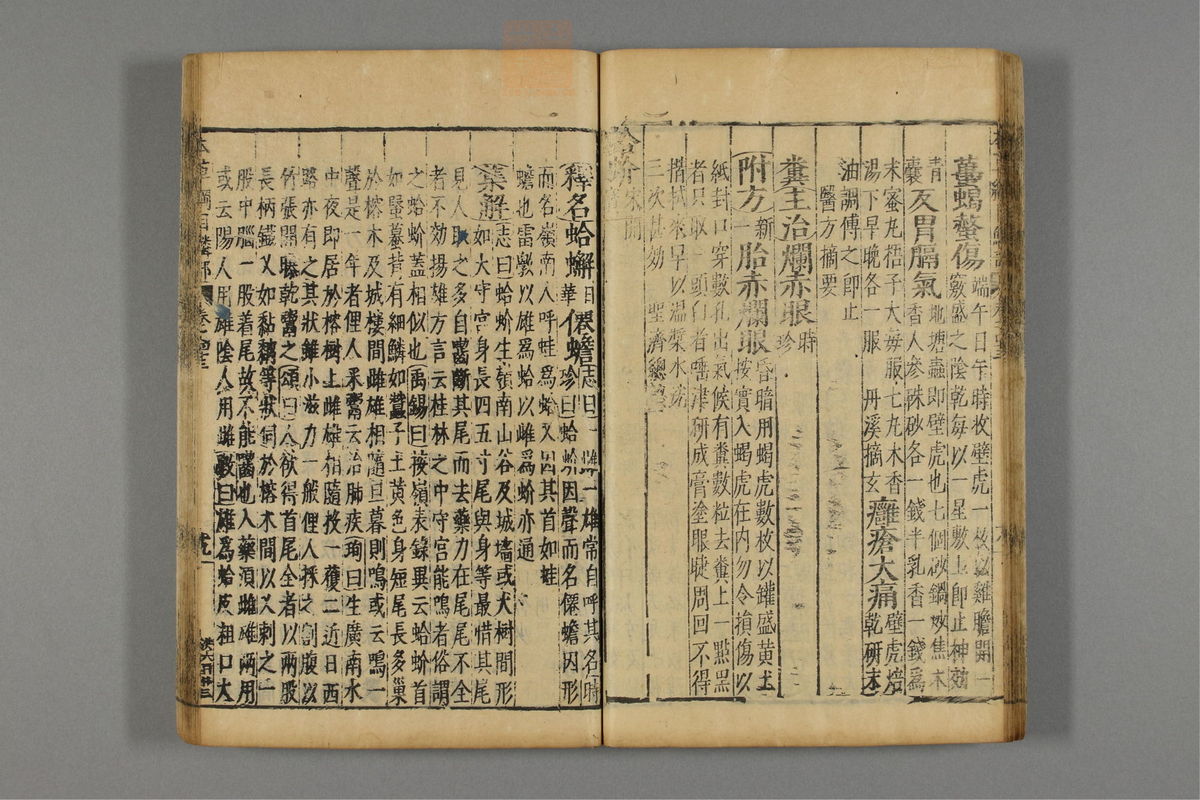 蠆蝎螫傷 端午日午時收壁虎一枚以雞膽開一
竅盛之陰乾每以一星敷上即止神效
青
囊 反胃膈氣 地塘蟲即壁虎也七個砂鍋炒焦木
香人參硃砂各一錢半乳香一錢爲
末蜜丸梧子大每服七丸木香
湯下早晚各一服 丹溪摘玄 癰瘡大痛 壁虎焙
乾研末
油調傅之即止
醫方摘要
糞主治爛赤眼 時
珍
附方 新
一 胎赤爛眼 昏暗用蝎虎數枚以罐盛黃土
按實入蝎虎在內勿令損傷以
紙封口穿數孔出氣候有糞數粒去糞上一點黑
者只取一頭白者唾津研成膏塗眼睫周回不得
揩拭來早以溫漿水洗
三次甚效 聖濟總
蛤蚧 宋開
釋名蛤蠏 日
華 僊蟾 志曰一雌一雄常自呼其名時
珍曰蛤蚧因聲而名僊蟾因形
而名嶺南人呼蛙爲蛤又因其首如蛙
蟾也雷斆以雄爲蛤以雌爲蚧亦通
集解 志曰蛤蚧生嶺南山谷及城墻或大樹間形
如大守宮身長四五寸尾與身等最惜其尾
見人取之多自嚙斷其尾而去藥力在尾尾不全
者不効揚雄方言云桂林之中守宮能鳴者俗謂
之蛤蚧蓋相似也禹錫曰按嶺表錄異云蛤蚧首
如蝦蟇背有細鱗如蠶子土黃色身短尾長多巢
於榕木及城樓間雌雄相隨旦暮則鳴或云鳴一
聲是一年者俚人采鬻云治肺疾珣曰生廣南水
中夜即居於榕樹上雌雄相隨投一獲二近日西
路亦有之其狀雖小滋力一般俚人採之割腹以
竹張開曝乾鬻之頌曰人欲得首尾全者以兩股
長柄鐵叉如黏黐竿狀伺於榕木間以叉刺之一
股中腦一股着尾故不能嚙也入藥須雌雄兩用
或云陽人用雄陰人用雌斆曰雄爲蛤皮粗口大